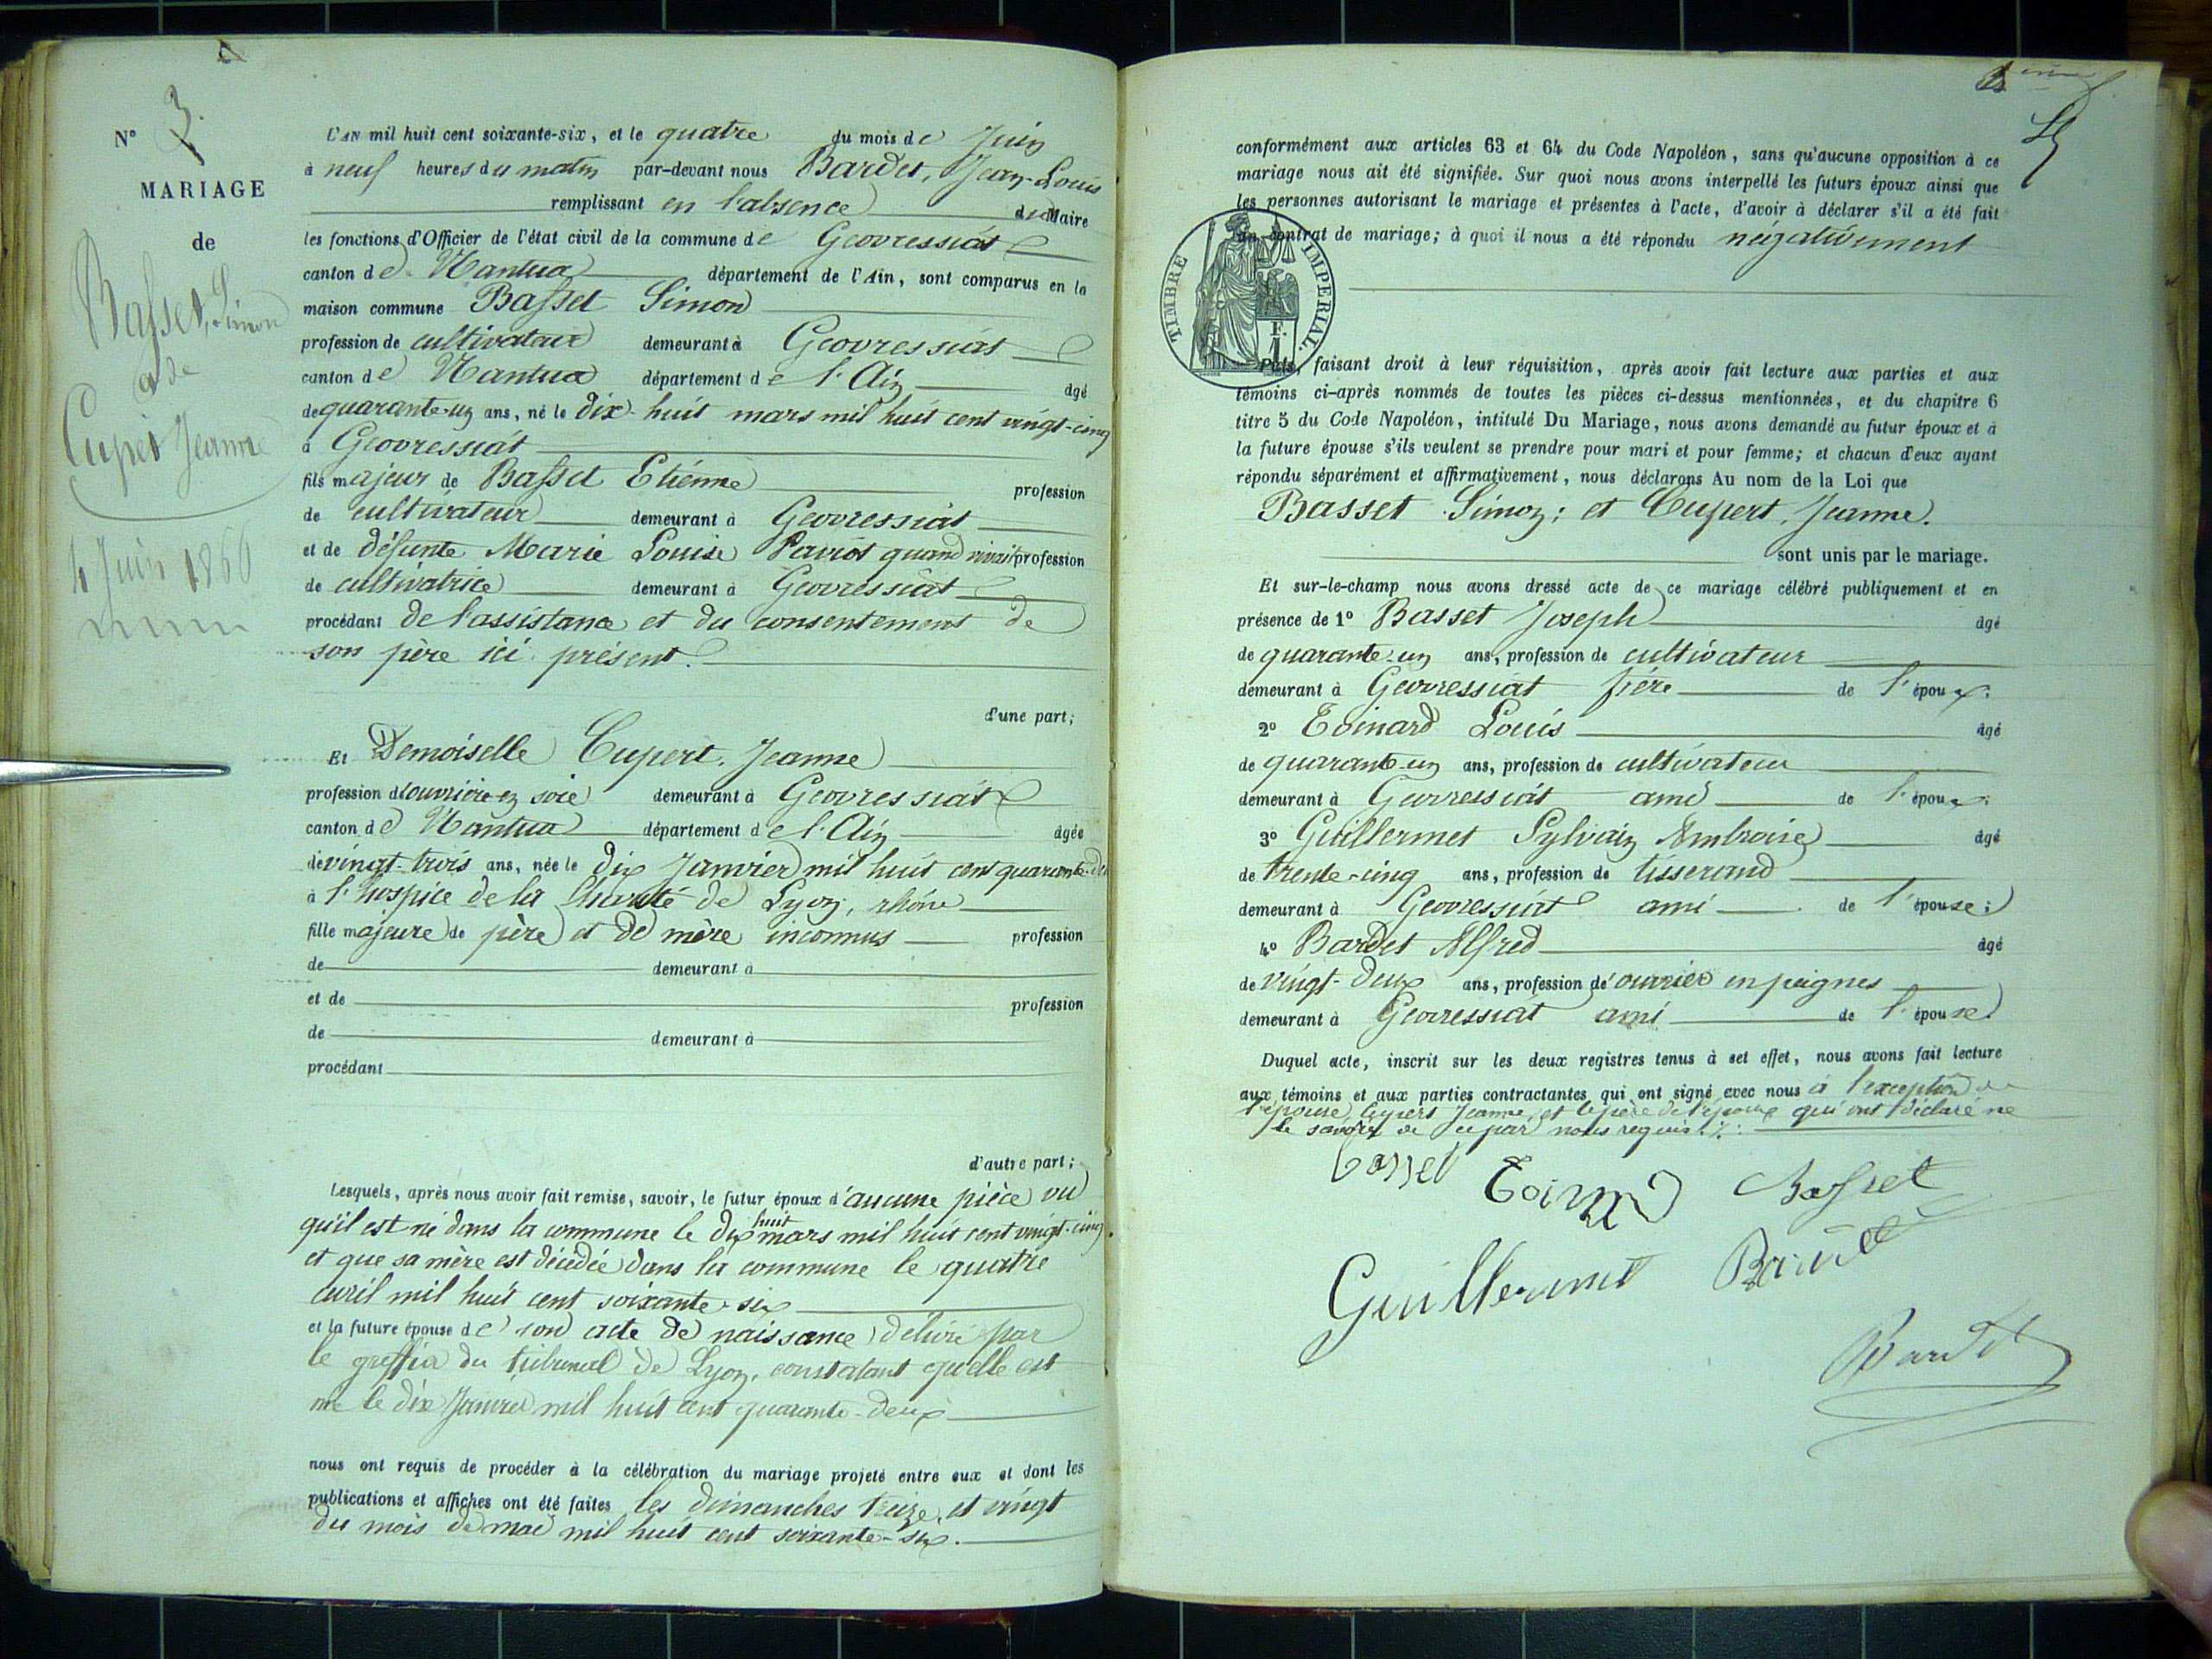 N° 3.
MARIAGE
de
Basset, Simon
et de
Cupert Jeanne
4 Juin 1866
L'AN mil huit cent soixante-six, et le quatre du mois de Juin
à neuf heures du matin par-devant nous Bardet, Jean-Louis
remplissant en l'absence du Maire
les fonctions d'Officier de l'état civil de la commune de Geovressiat
canton de Nantua département de l'Ain, sont comparus en la
maison commune Basset Simon
profession de cultivateur demeurant à Geovressiat
canton de Nantua département de l'Ain âgé
de quarante-un ans, né le dix-huit mars mil huit cent vingt-cinq
à Geovressiat
fils majeur de Basset Etiénne profession
de cultivateur demeurant à Geovressiat
et de défunte Marie Louise Paviot quand vivait profession
de cultivatrice demeurant à Geovressiat
procédant de l'assistance et du consentement de
son père ici présent.
d'une part;
Et Demoiselle Cupert, Jeanne
profession d'ouvrière en soie demeurant à Geovressiat
canton de Nantua département de l'Ain âgée
de vingt-trois ans, née le dix Janvier mil huit cent quarante-deux
à l'hospice de la Charité de Lyon, rhône
fille majeure de père et de mère inconnus profession
de demeurant à
et de profession
de demeurant à
procédant
d'autre part;
Lesquels, après nous avoir fait remise, savoir, le futur époux d'aucune pièce vu
qu'il est né dans la commune le dix huit mars mil huit cent vingt-cinq.
et que sa mère est décédée dans la commune le quatre
avril mil huit cent soixante-six
et la future épouse de son acte de naissance délivré par
le greffier du tribunal de Lyon, constatant qu'elle est
née le dix Janvier mil huit cent quarante-deux
nous ont requis de procéder à la célébration du mariage projeté entre eux et dont les
publications et affiches ont été faites les dimanches treize, et vingt
du mois de mai mil huit cent soixante-six.
conformément aux articles 63 et 64 du Code Napoléon, sans qu'aucune opposition à ce
mariage nous ait été signifiée. Sur quoi nous avons interpellé les futurs époux ainsi que
les personnes autorisant le mariage et présentes à l'acte, d'avoir à déclarer s'il a été fait
un contrat de mariage; à quoi il nous a été répondu négativement
TIMBRE IMPERIAL.
F.
1
Puis, faisant droit à leur réquisition, après avoir fait lecture aux parties et aux
témoins ci-après nommés de toutes les pièces ci-dessus mentionnées, et du chapitre 6
titre 5 du Code Napoléon, intitulé Du Mariage, nous avons demandé au futur époux et à
la future épouse s'ils veulent se prendre pour mari et pour femme; et chacun d'eux ayant
répondu séparément et affirmativement, nous déclarons Au nom de la Loi que
Basset Simon; et Cupert, Jeanne.
sont unis par le mariage.
Et sur-le-champ nous avons dressé acte de ce mariage célébré publiquement et en
présence de 1° Basset Joseph âgé
de quarante-un ans, profession de cultivateur
demeurant à Geovressiat frère de l'époux;
2° Toinard Louis âgé
de quarante-un ans, profession de cultivateur
demeurant à Geovressiat ami de l'époux;
3° Guillermet Sylvain Ambroise âgé
de trente-cinq ans, profession de tisserand
demeurant à Geovressiat ami de l'épouse;
4° Bardet Alfred âgé
de vingt-deux ans, profession d'ouvrier en peignes
demeurant à Geovressiat ami de l'épouse.
Duquel acte, inscrit sur les deux registres tenus à cet effet, nous avons fait lecture
aux témoins et aux parties contractantes qui ont signé avec nous à l'exception de
l'épouse, Cupert Jeanne, et le père de l'époux qui ont déclaré ne
le savoir de ce par nous requis.
Basset Toinard Basset
Guillermet Bardet
Bardet